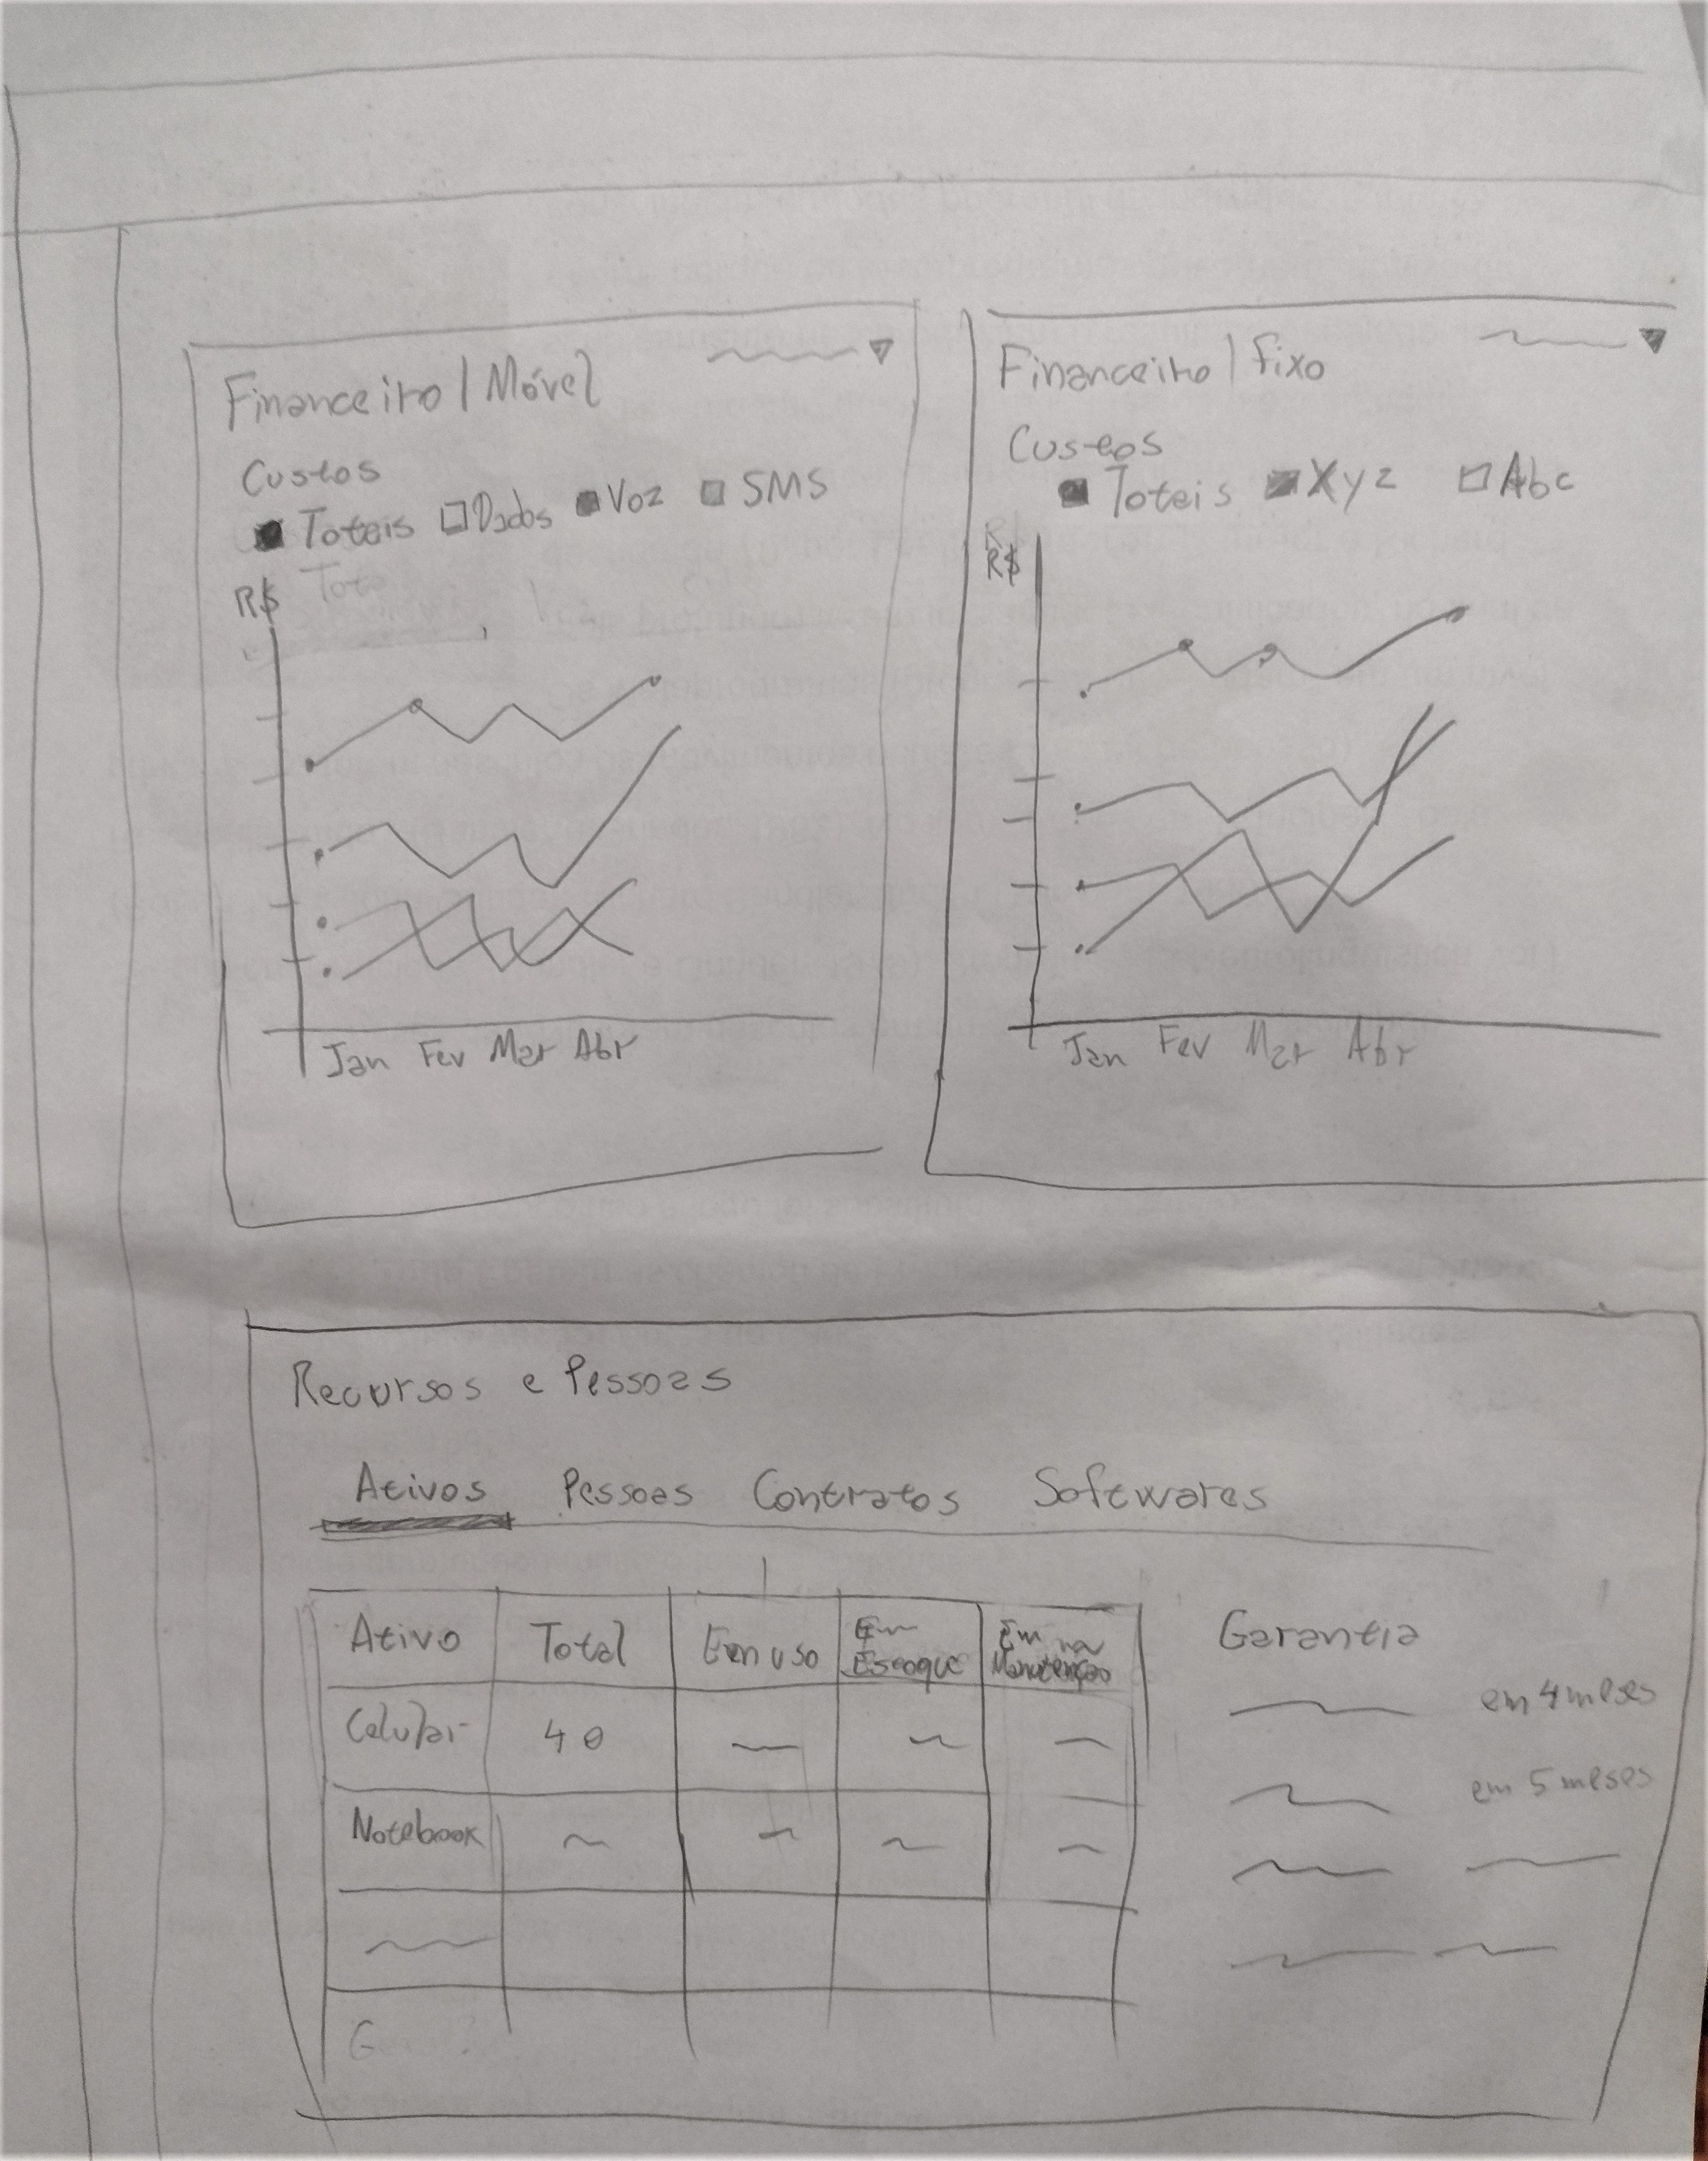 Financeiro | Móvel
Custos
Totais Dados Voz SMS
R$
Jan Fev Mar Abr
Financeiro | Fixo
Custos
Totais Xyz Abc
R$
Jan Fev Mar Abr
Recursos e Pessoas
Ativos Pessoas Contratos Softwares
Ativo Total Em uso Em Estoque Em Manutenção
Celular 40
Notebook
Garantia
em 4 meses
em 5 meses